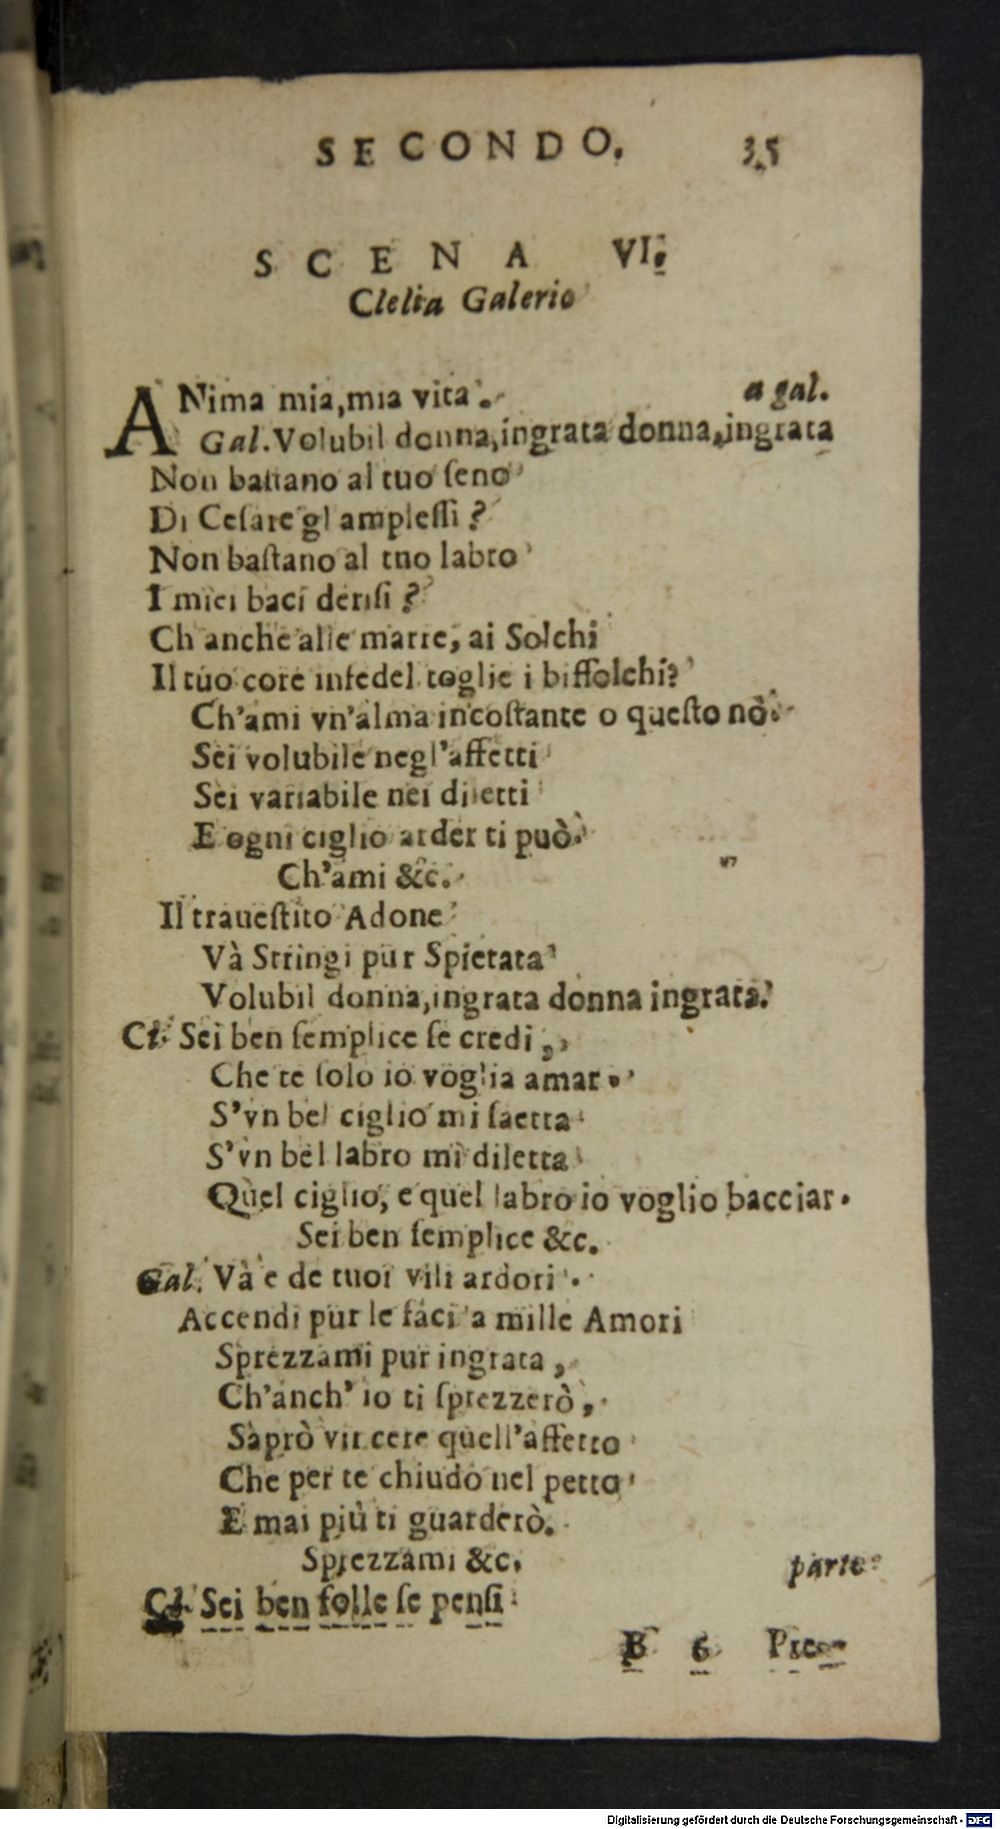 SECONDO. 35
SCENA VI.
Clelia Galerio
ANima mia, mia vita. a gal.
Gal. Volubil donna, ingrata donna, ingrata
Non baſtano al tuo ſeno
Di Ceſare gl ampleſſi?
Non baſtano al tuo labro
I miei baci deriſi?
Ch anche alle marre, ai Solchi
Il tuo core infedel toglie i biffolchi?
Ch'ami vn'alma incoſtante o queſto nò.
Sei volubile negl'affetti
Sei variabile nei diletti
E ogni ciglio arder ti può.
Ch'ami &c.
Il traueſtito Adone
Và Stringi pur Spietata
Volubil donna, ingrata donna ingrata.
Cl. Sei ben ſemplice ſe credi,
Che te ſolo io voglia amar.
S'vn bel ciglio mi ſaetta
S'vn bel labro mi diletta
Quel ciglio, e quel labro io voglio bacciar.
Sei ben ſemplice &c.
Gal. Và e de tuoi vili ardori.
Accendi pur le faci a mille Amori
Sprezzami pur ingrata,
Ch'anch' io ti ſprezzerò,
Saprò vincere quell'affetto
Che per te chiudo nel petto
E mai più ti guarderò.
Sprezzami &c. parte
Cl. Sei ben folle ſe penſi
B 6 Pre-
Digitalisierung gefördert durch die Deutsche Forschungsgemeinschaft - DFG